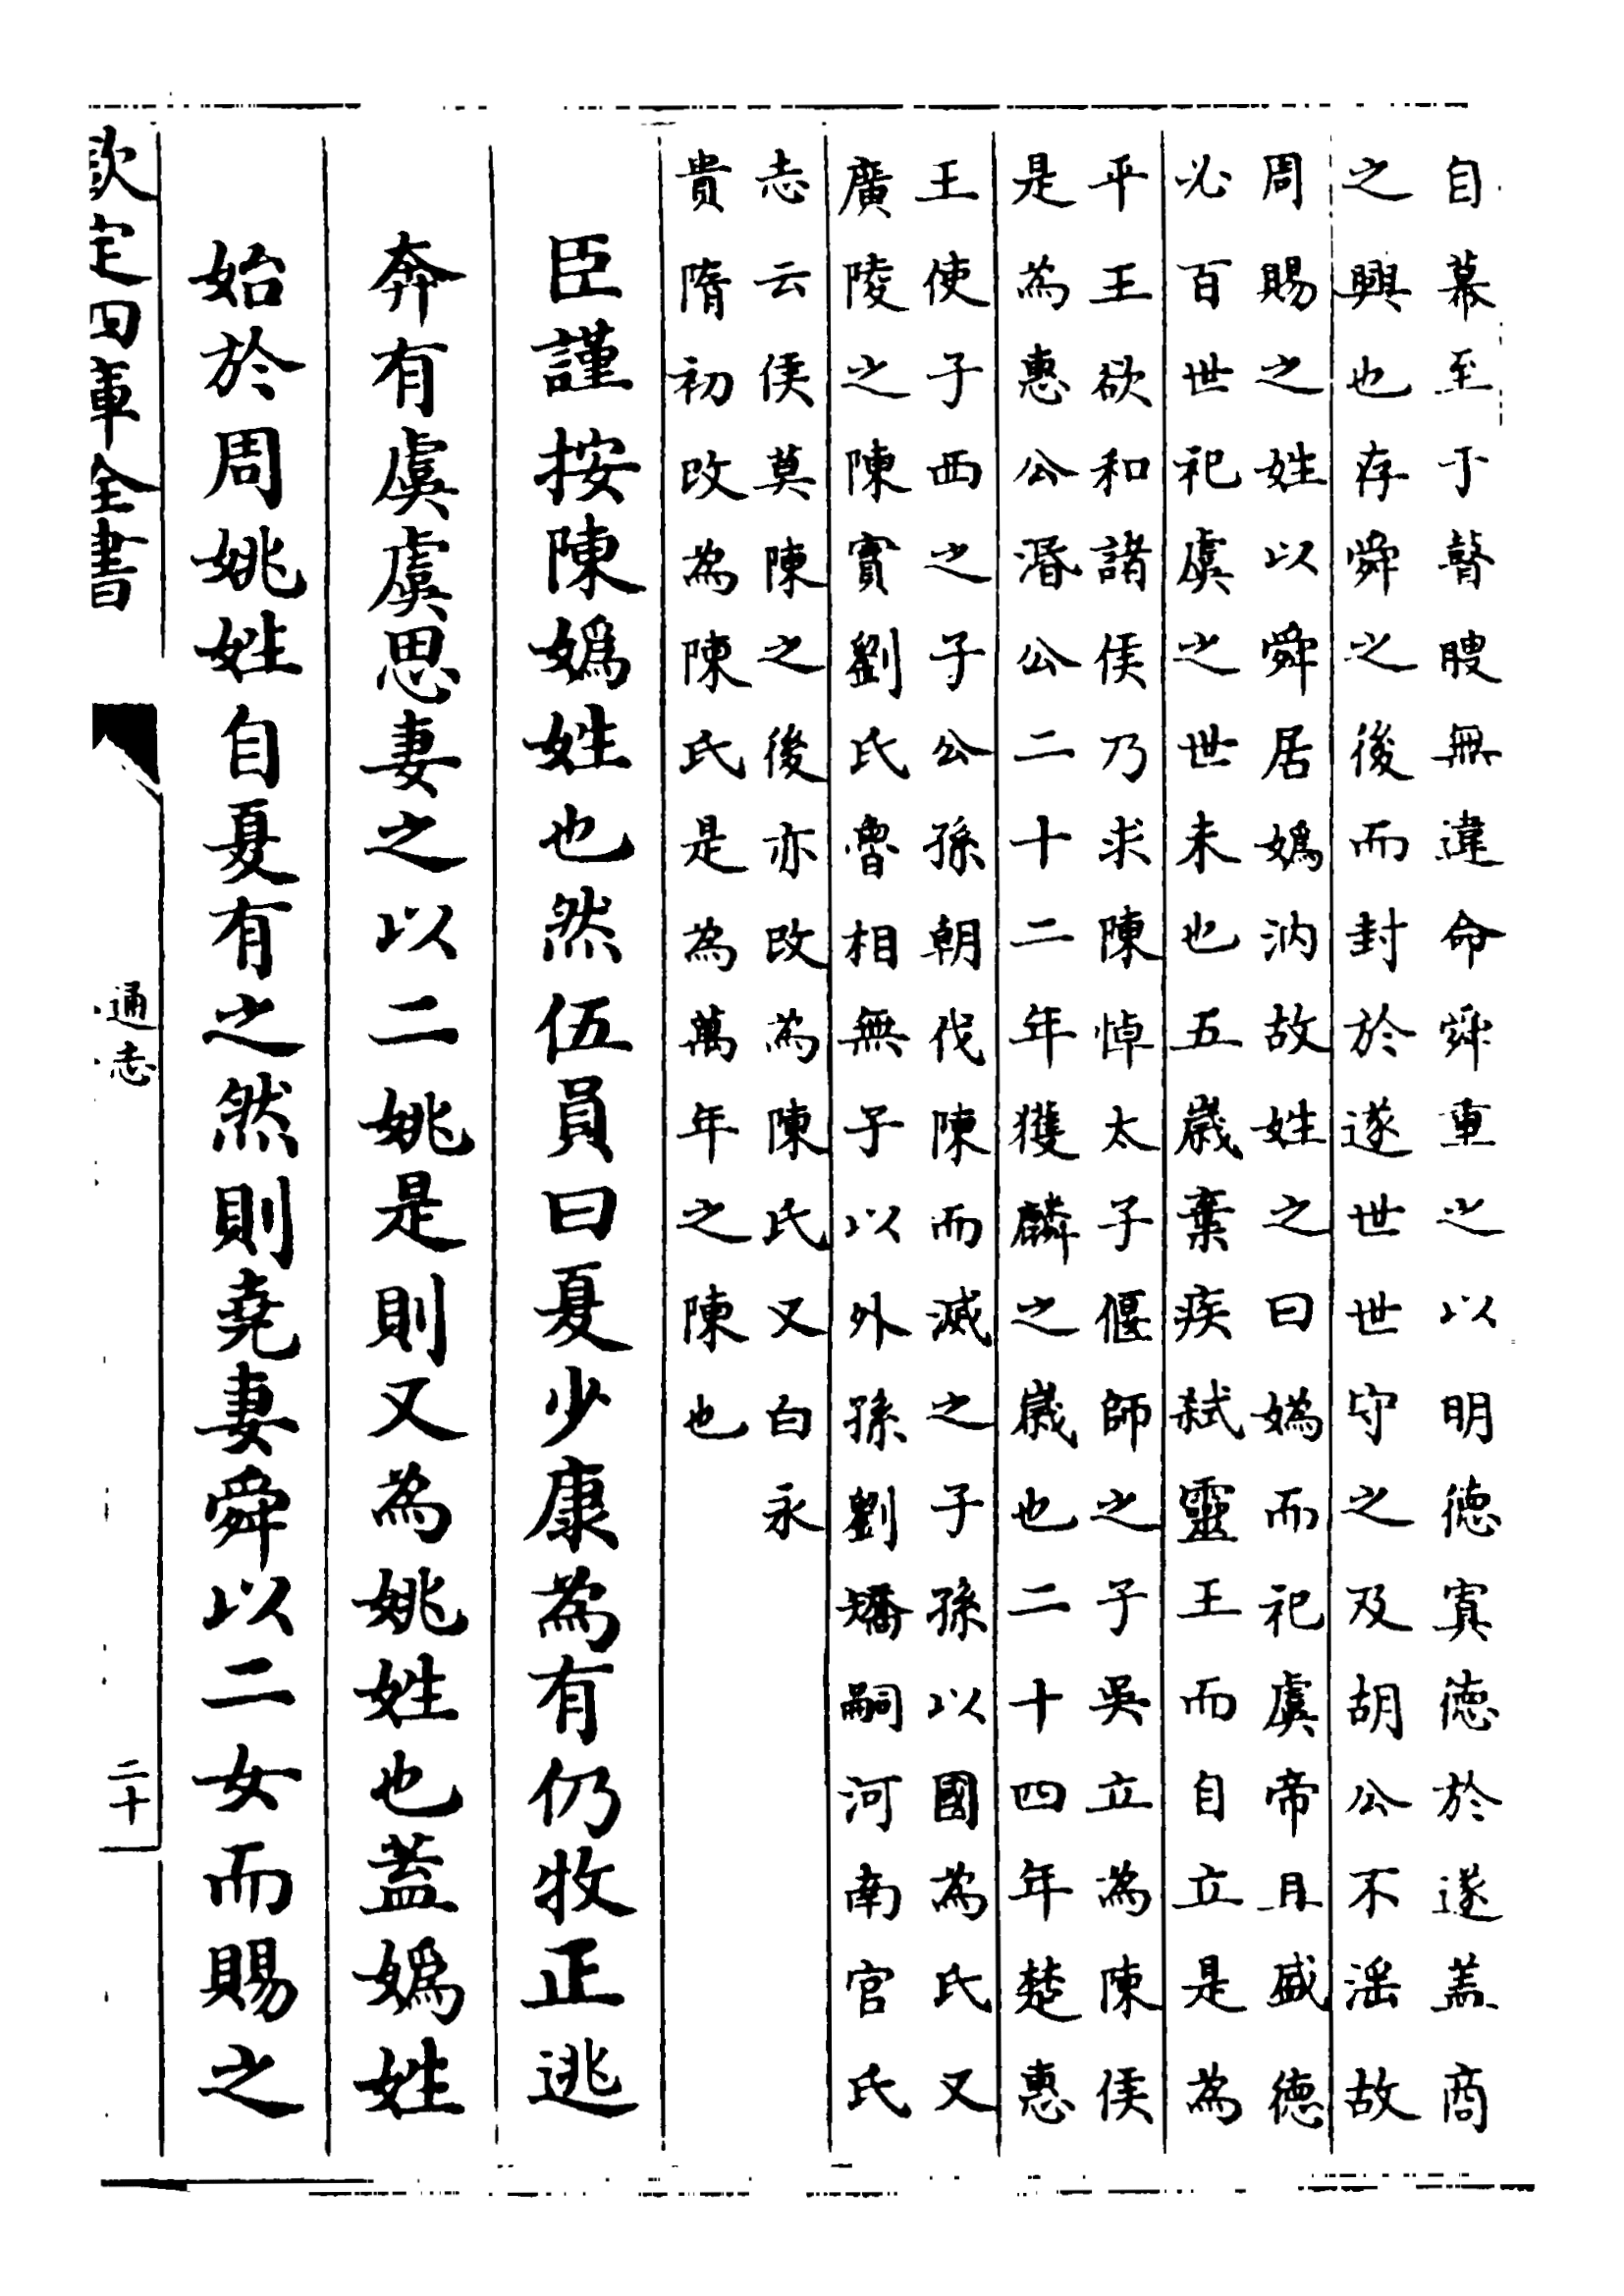 自幕至于瞽瞍無違命舜重之以明徳寘徳於遂盖商
之興也存舜之後而封於遂世世守之及胡公不滛故
周賜之姓以舜居媯汭故姓之曰媯而祀虞帝且盛徳
必百世祀虞之世未也五嵗棄疾弑靈王而自立是為
平王欲和諸侯乃求陳悼太子偃師之子吳立為陳侯
是為惠公湣公二十二年獲麟之嵗也二十四年楚惠
王使子西之子公孫朝伐陳而滅之子孫以國為氏又
廣陵之陳實劉氏魯相無子以外孫劉矯嗣河南官氏
志云侯莫陳之後亦改為陳氏又白永
貴隋初改為陳氏是為萬年之陳也
臣謹按陳媯姓也然伍員曰夏少康為有仍牧正逃
奔有虞虞思妻之以二姚是則又為姚姓也蓋媯姓
始於周姚姓自夏有之然則堯妻舜以二女而賜之
欽定四庫全書
通志
二十